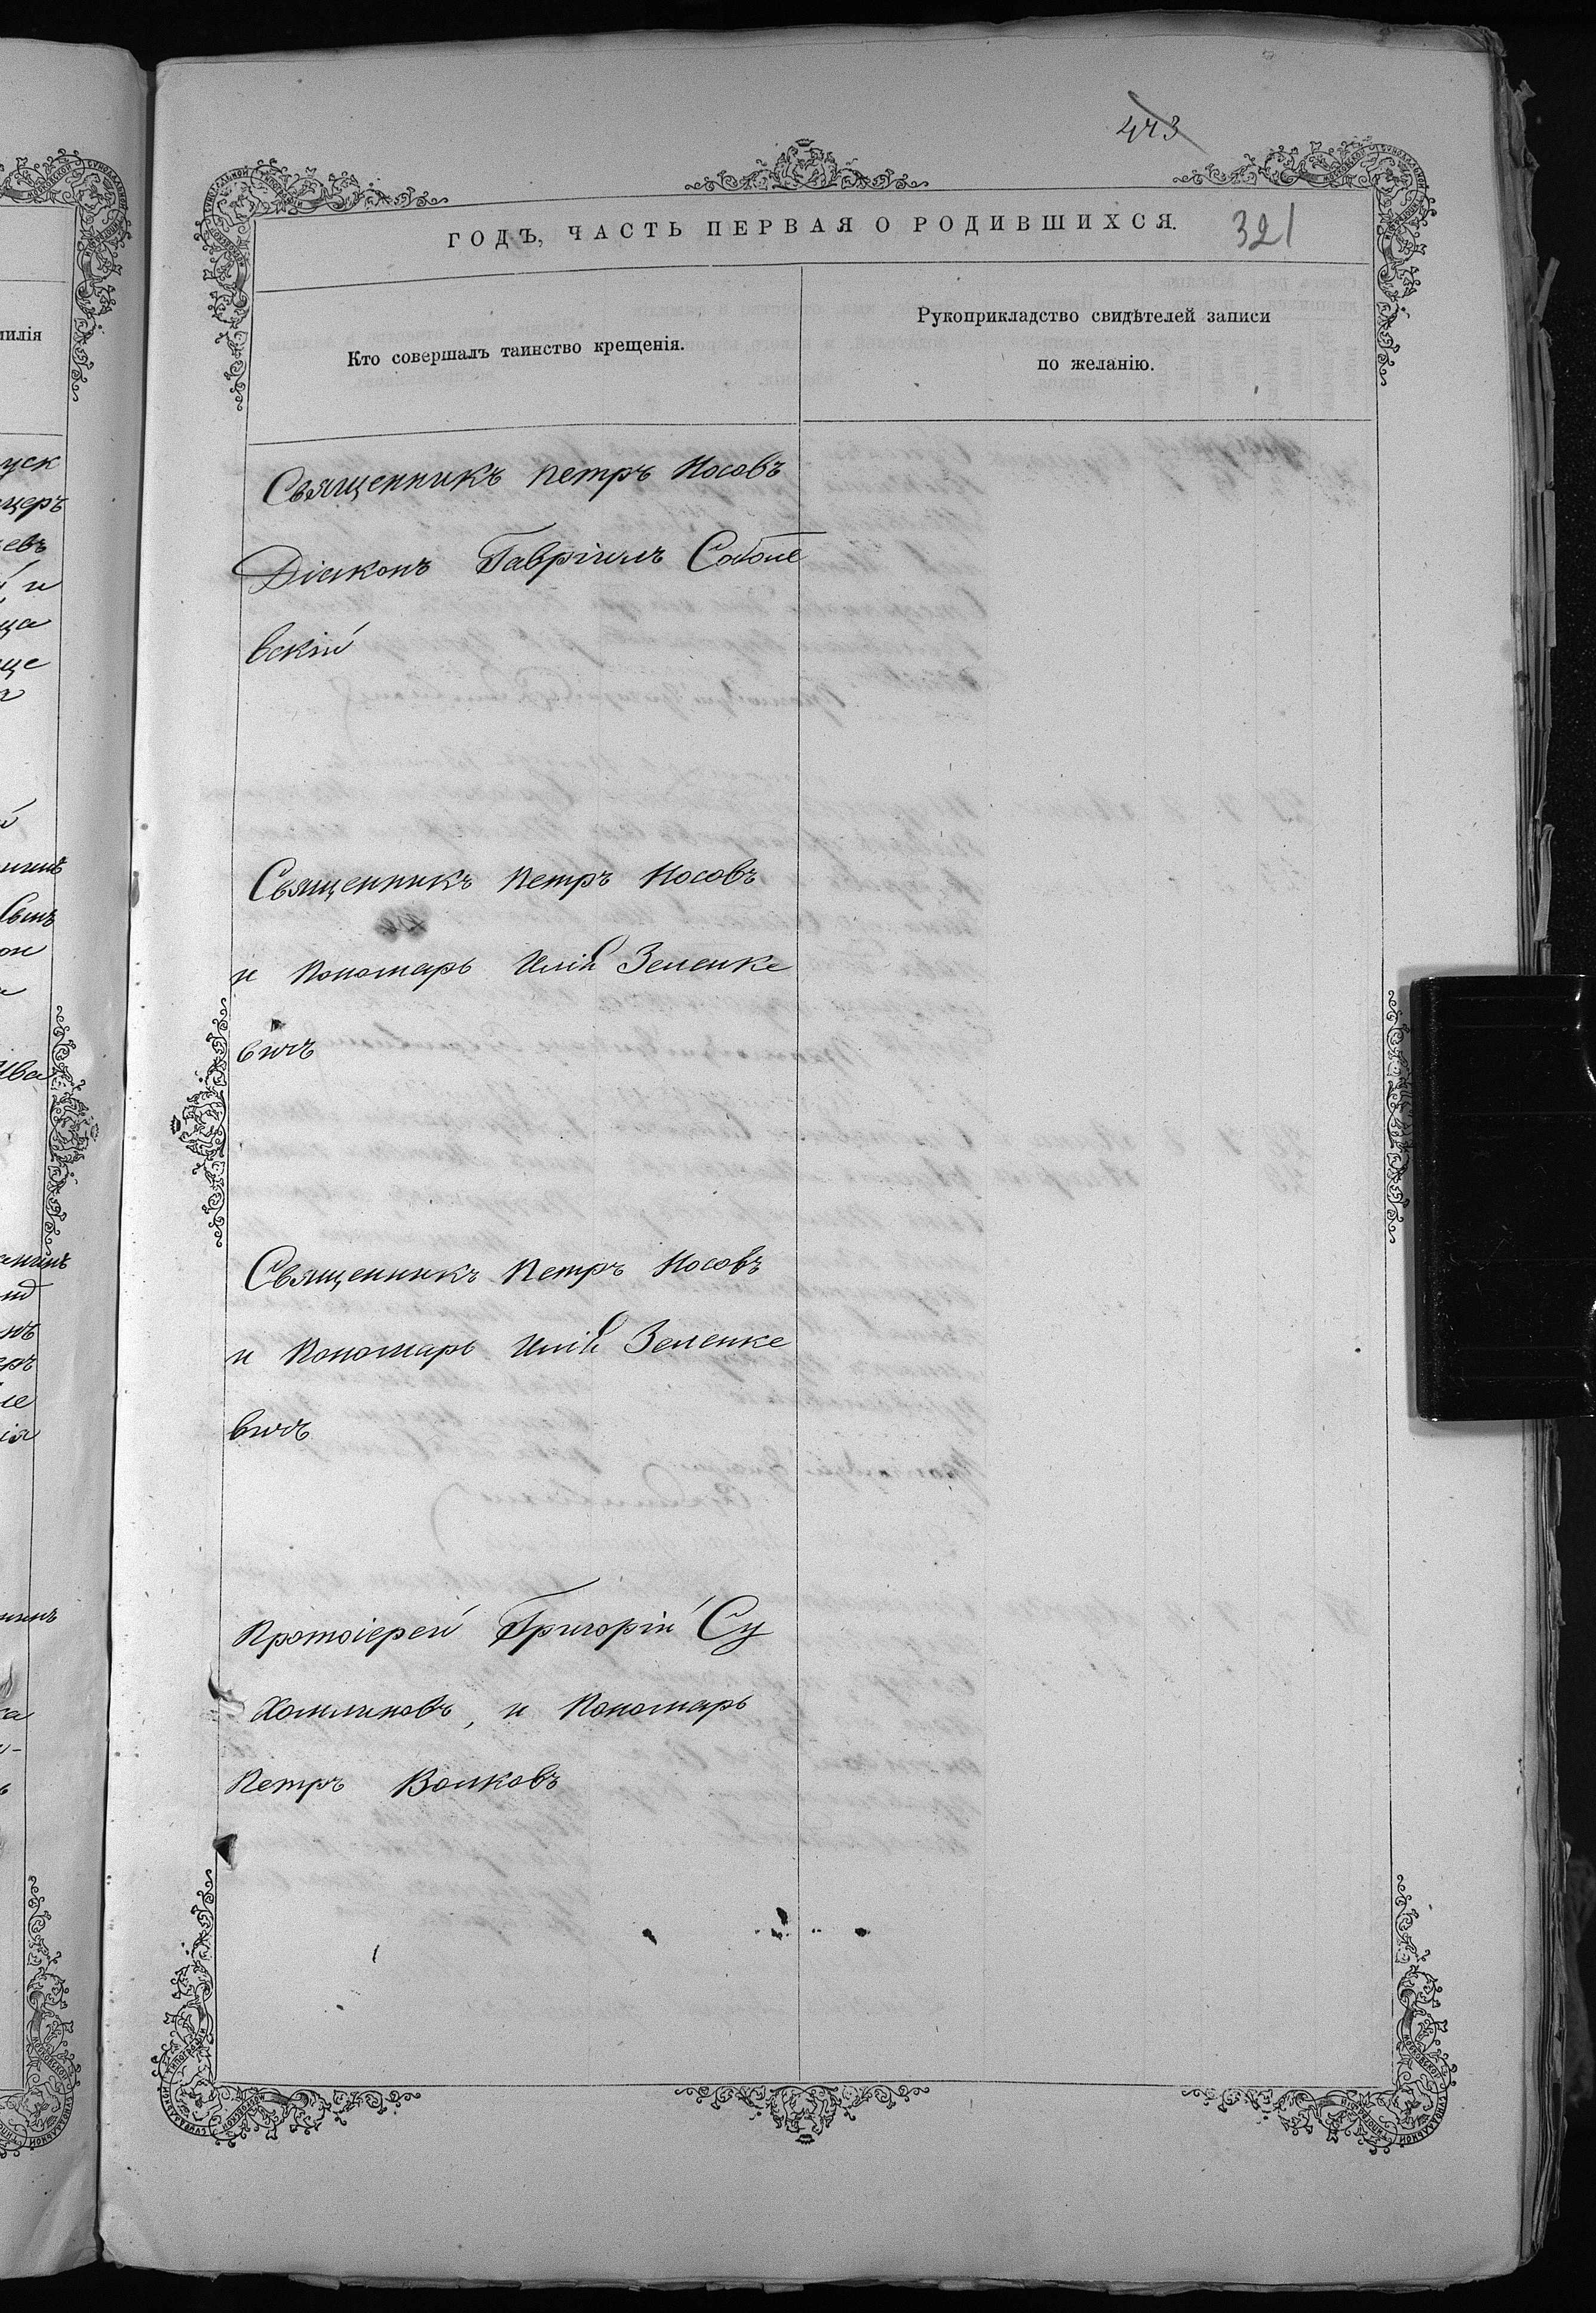 443
ГОДЪ, ЧАСТЬ ПЕРВАЯ О РОДИВШИХСЯ.
321
Кто совершалъ таинство крещенія.
Рукоприкладство свидѣтелей записи
по желанію.
Священникъ Петръ Носовъ
Діаконъ Гавріилъ Соболе
вскій
Священникъ Петръ Носовъ
и Пономарь Илія Зеленке
вичъ
Священникъ Петръ Носовъ
и Пономарь Илія Зеленке
вичъ
Протоіерей Григорій Су
хомлиновъ, и Пономарь
Петръ Волковъ